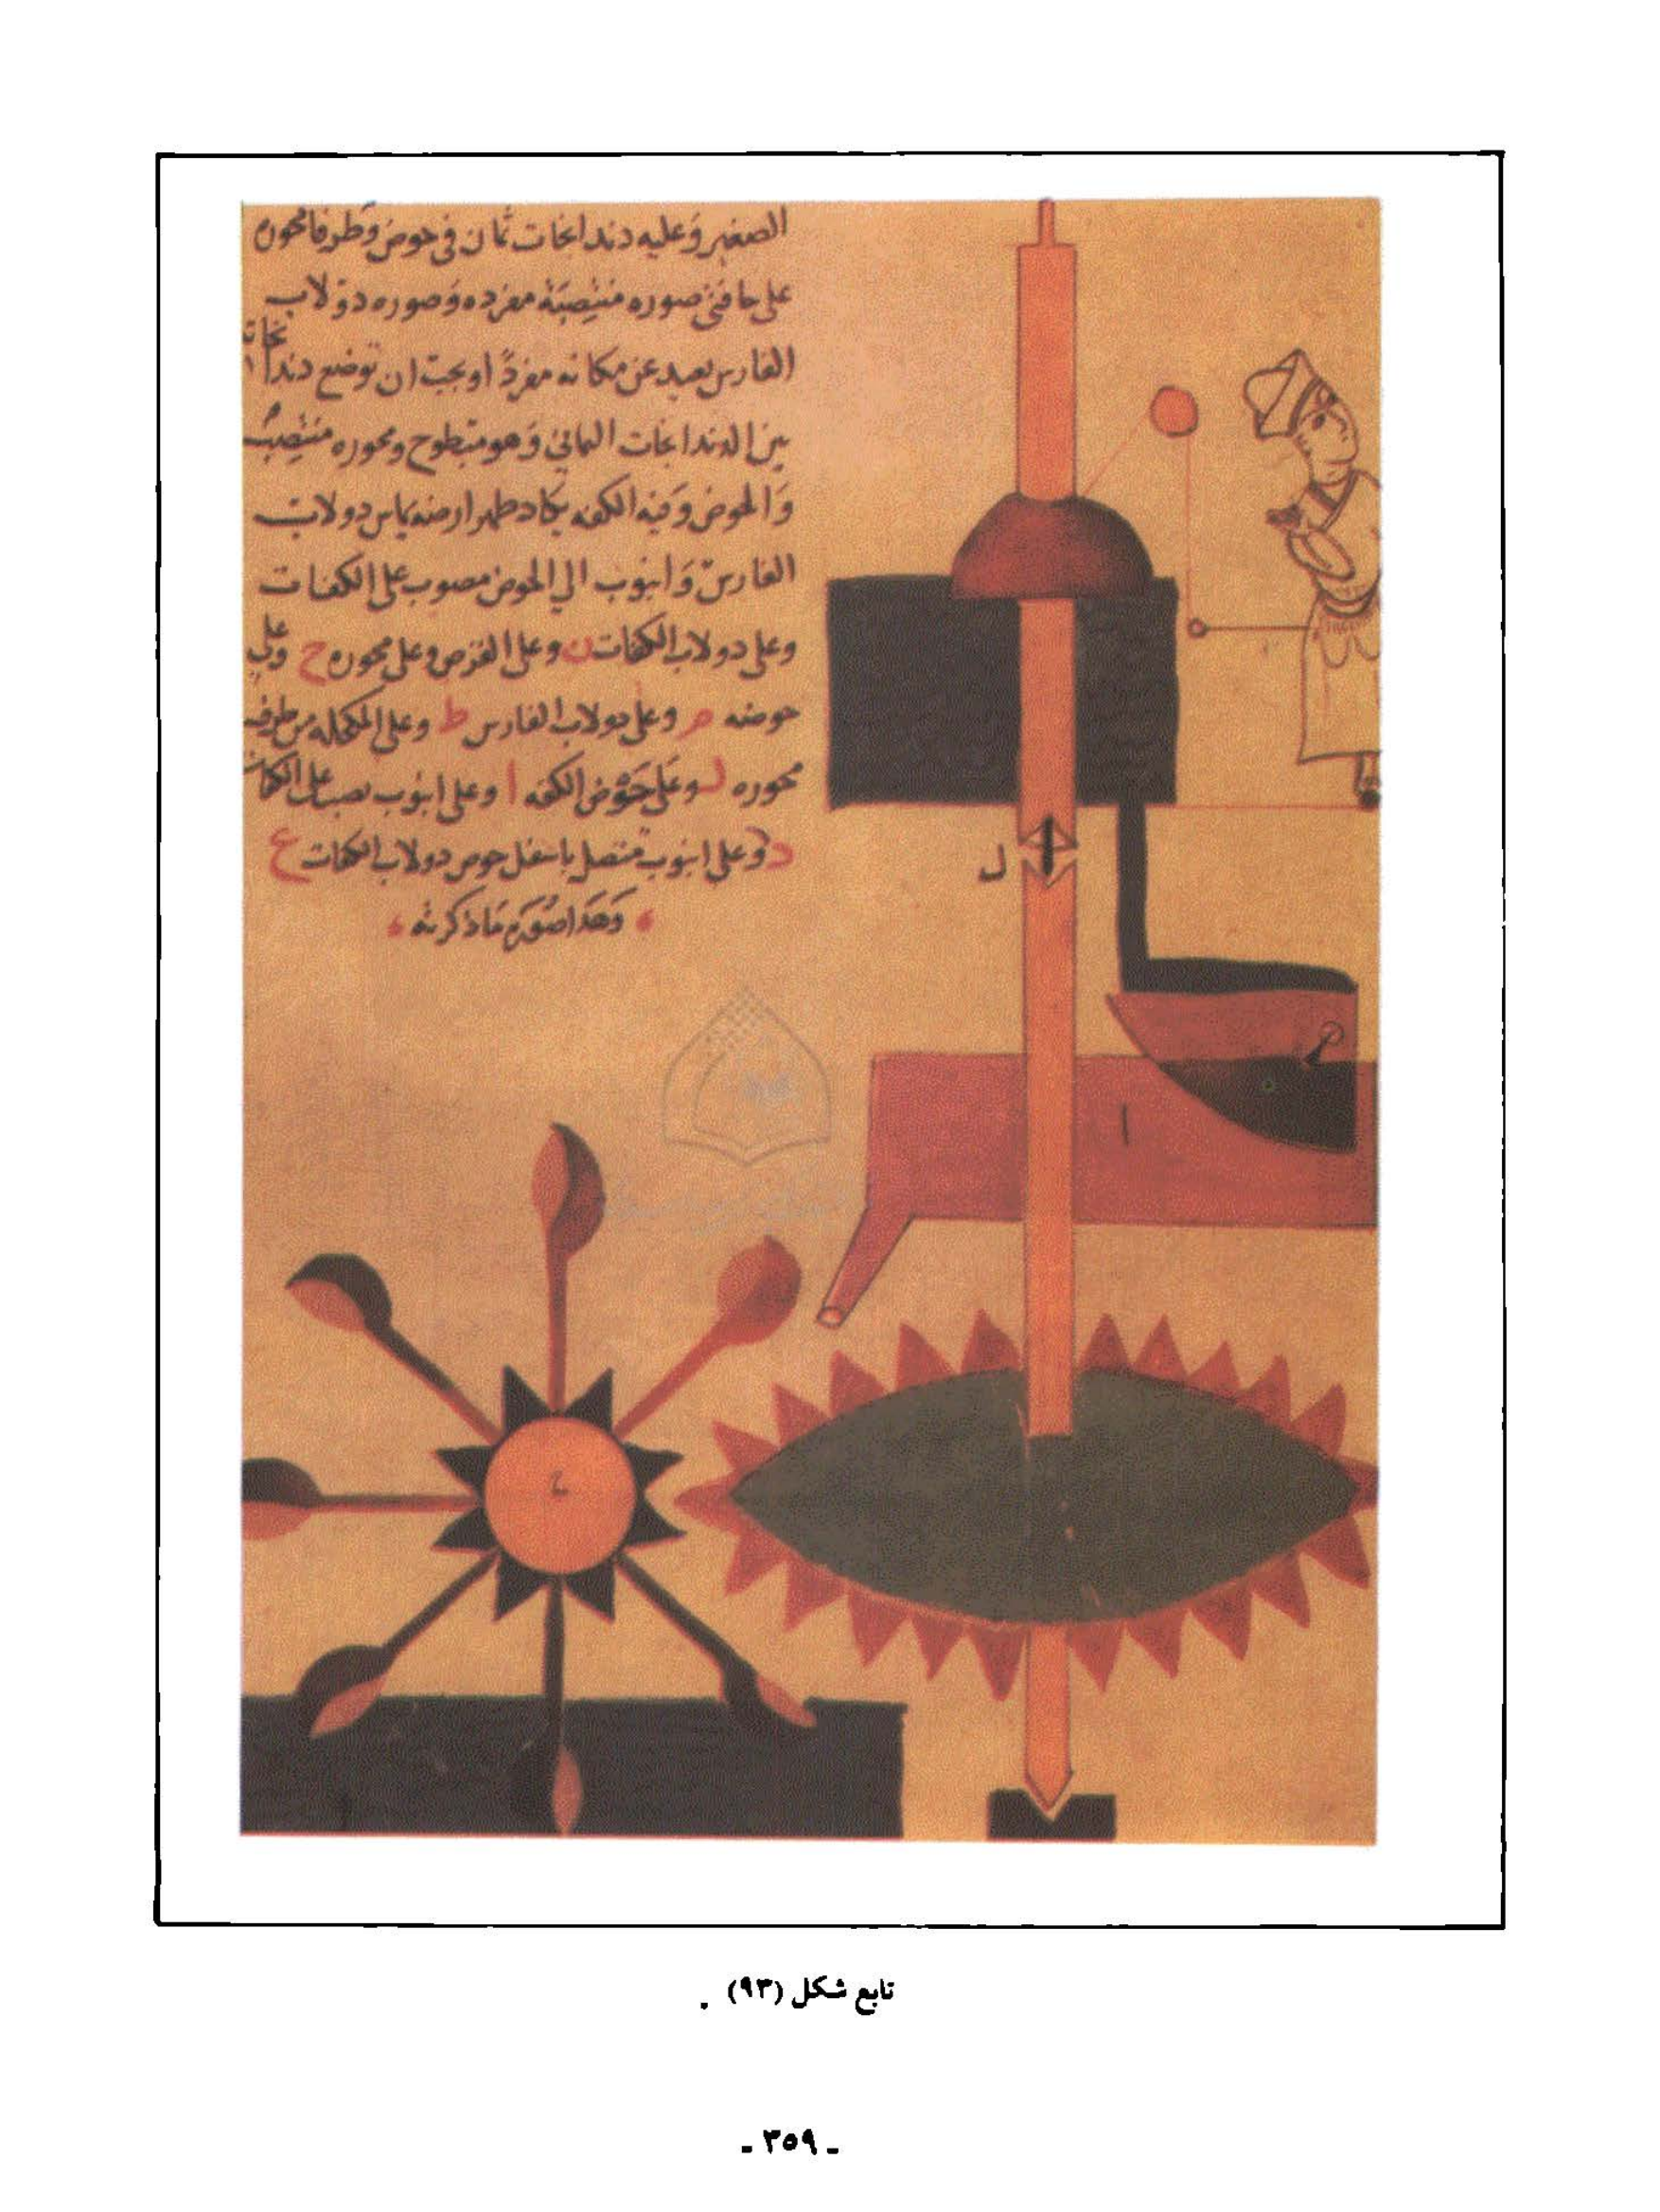 الصغير وعليه دندانجات ثمان في حوض وطرفا محوره
على حافتى صوره منتصبة مفرده وصوره دولاب
الفارس بعيد عن مكانه مفردًا ويجب ان توضع دندانجاته
بين الدندانجات الثماني وهو مبطوح ومحوره منتصب
والحوض وفيه الكفه يكاد ظهر ارضه يماس دولاب
الفارس وانبوب الي الحوض مصبوب على الكفات
وعلى دولاب الكفات ن وعلى القرص وعلى محوره ح وعلى
حوضه م وعلى دولاب الفارس ط وعلى المكحله من طرف
محوره ل وعلى حوض الكفه ا وعلى انبوب يصب على الكفات
د وعلى انبوب متصل باسفل حوض دولاب الكفات ع
وهذا صورة ما ذكرته
ل
ا
ح
تابع شكل (٩٣) .
- ٣٥٩ -